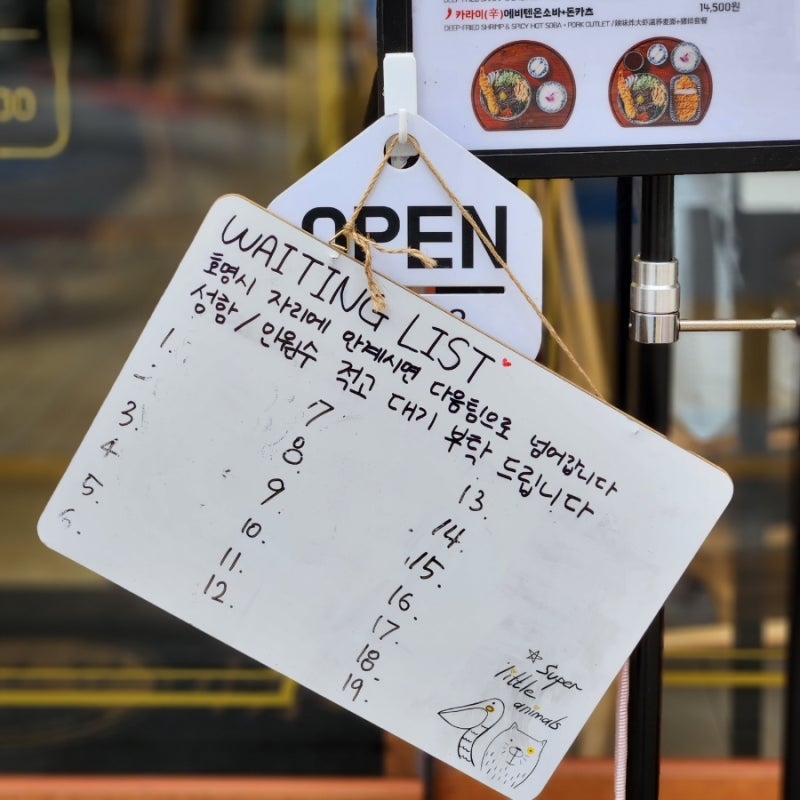 카라이(辛)에비텐온소바+돈카츠 14,500원
DEEP-FRIED SHRIMP & SPICY HOT SOBA + PORK CUTLET /
OPEN
WAITING LIST
호명시 자리에 안계시면 다음팀으로 넘어갑니다
성함 / 인원수 적고 대기 부탁 드립니다
1.
3.
4.
5.
6.
7
8.
9.
10.
11.
12.
13.
14.
15.
16.
17.
18.
19.
☆ Super
little
animals